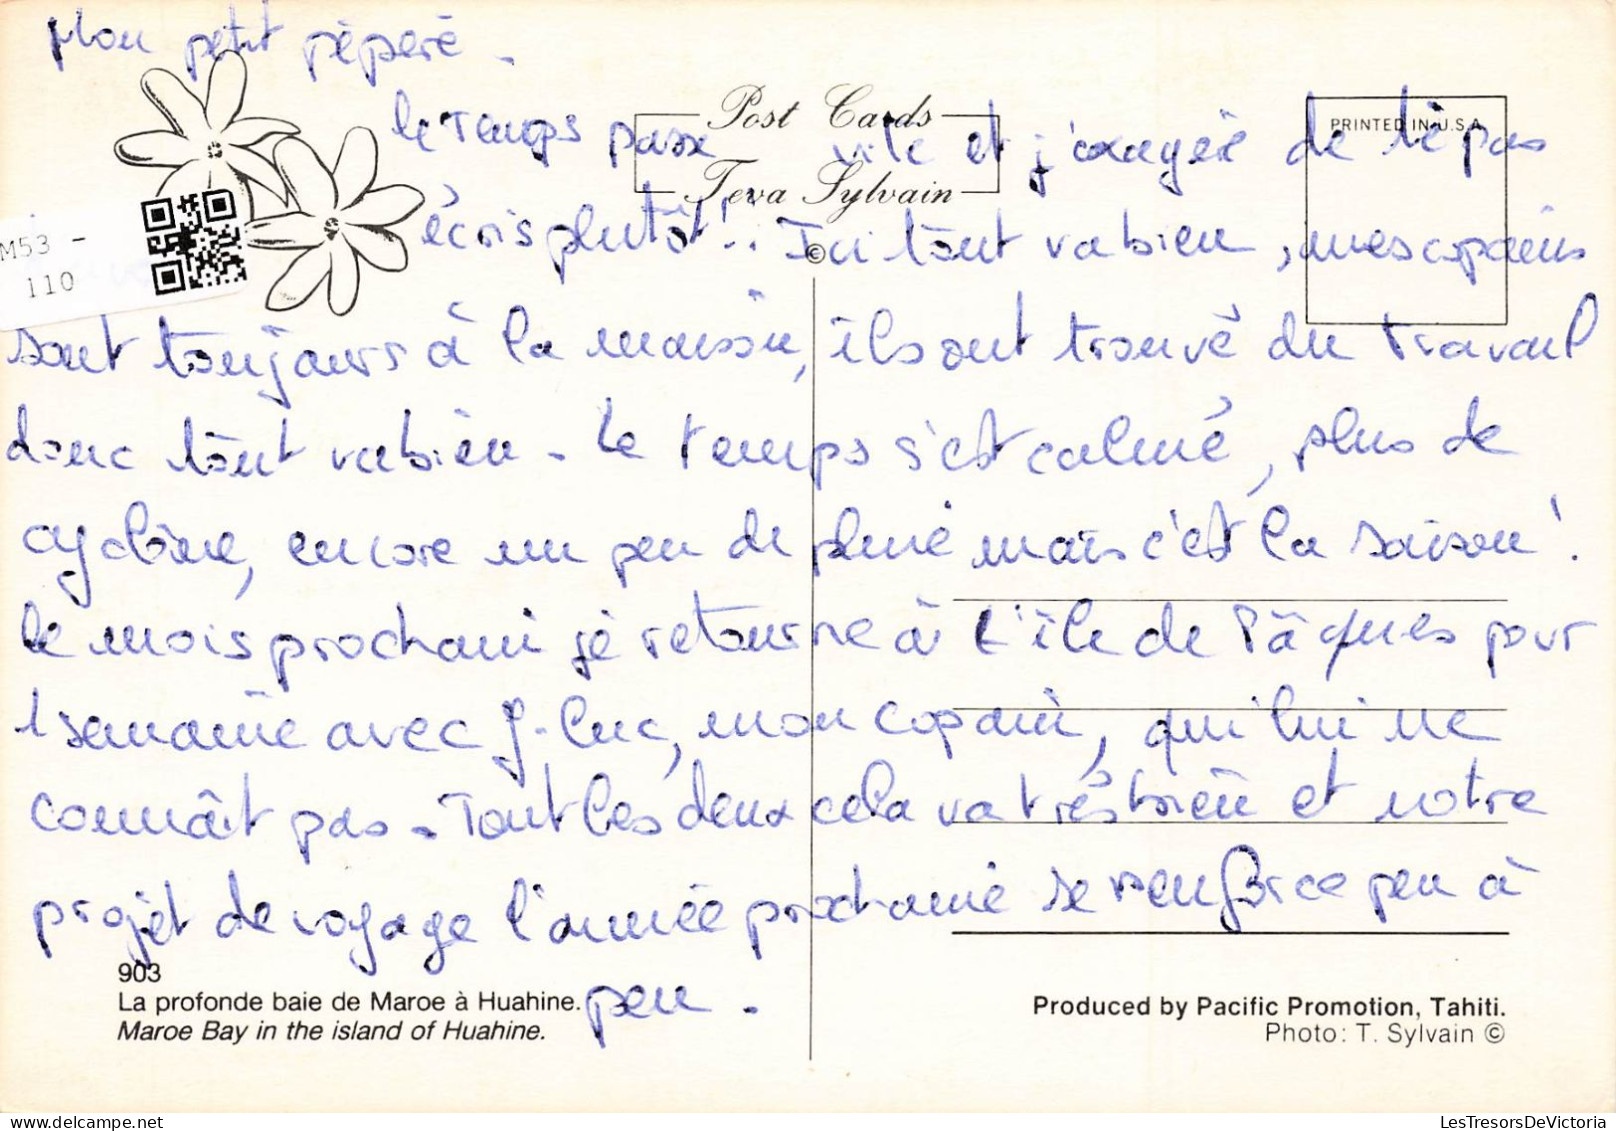 Mon petit pépère -
Post Cards
PRINTED IN U.S.A.
le temps passe vite et j'exagère de t'é pas
Teva Sylvain
écris plutôt!.. Ici tout va bien, mes copains
©
M53 -
110
sont toujours à la maison, ils ont trouvé du travail
donc tout va bien - le temps s'est calmé, plus de
cyclône, encore un peu de pluie mais c'est la saison!
le mois prochain je retourne à l'île de Pâques pour
1 semaine avec J-Luc, mon copain, qui lui ne
connaît pas - Tout les deux cela va très bien et notre
projet de voyage l'année prochaine se renforce peu à
peu -
903
La profonde baie de Maroe à Huahine.
Maroe Bay in the island of Huahine.
Produced by Pacific Promotion, Tahiti.
Photo: T. Sylvain ©
LesTresorsDeVictoria